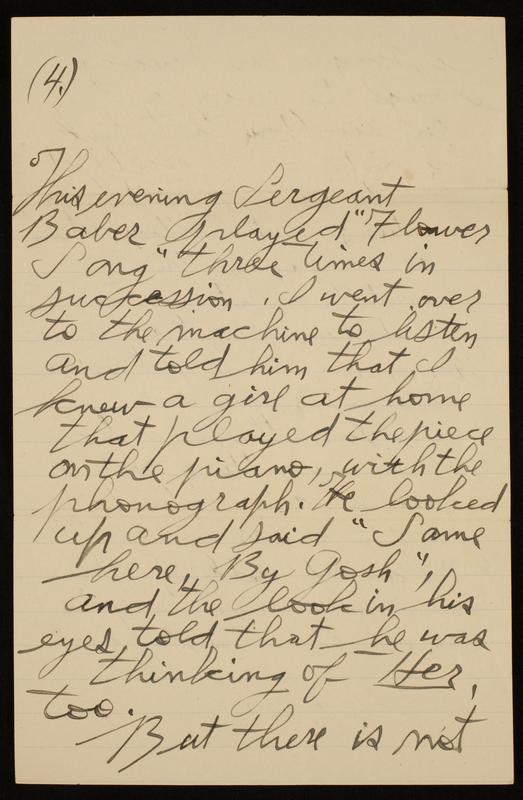 (4.)
This evening Sergeant
Baber played "Flower
Song" three times in
succession. I went over
to the machine to listen
and told him that I
knew a girl at home
that played the piece
on the piano, with the
phonograph. He looked
up and said "Same
here, By Gosh",
and the look in his
eyes told that he was
thinking of Her,
too.
But there is not